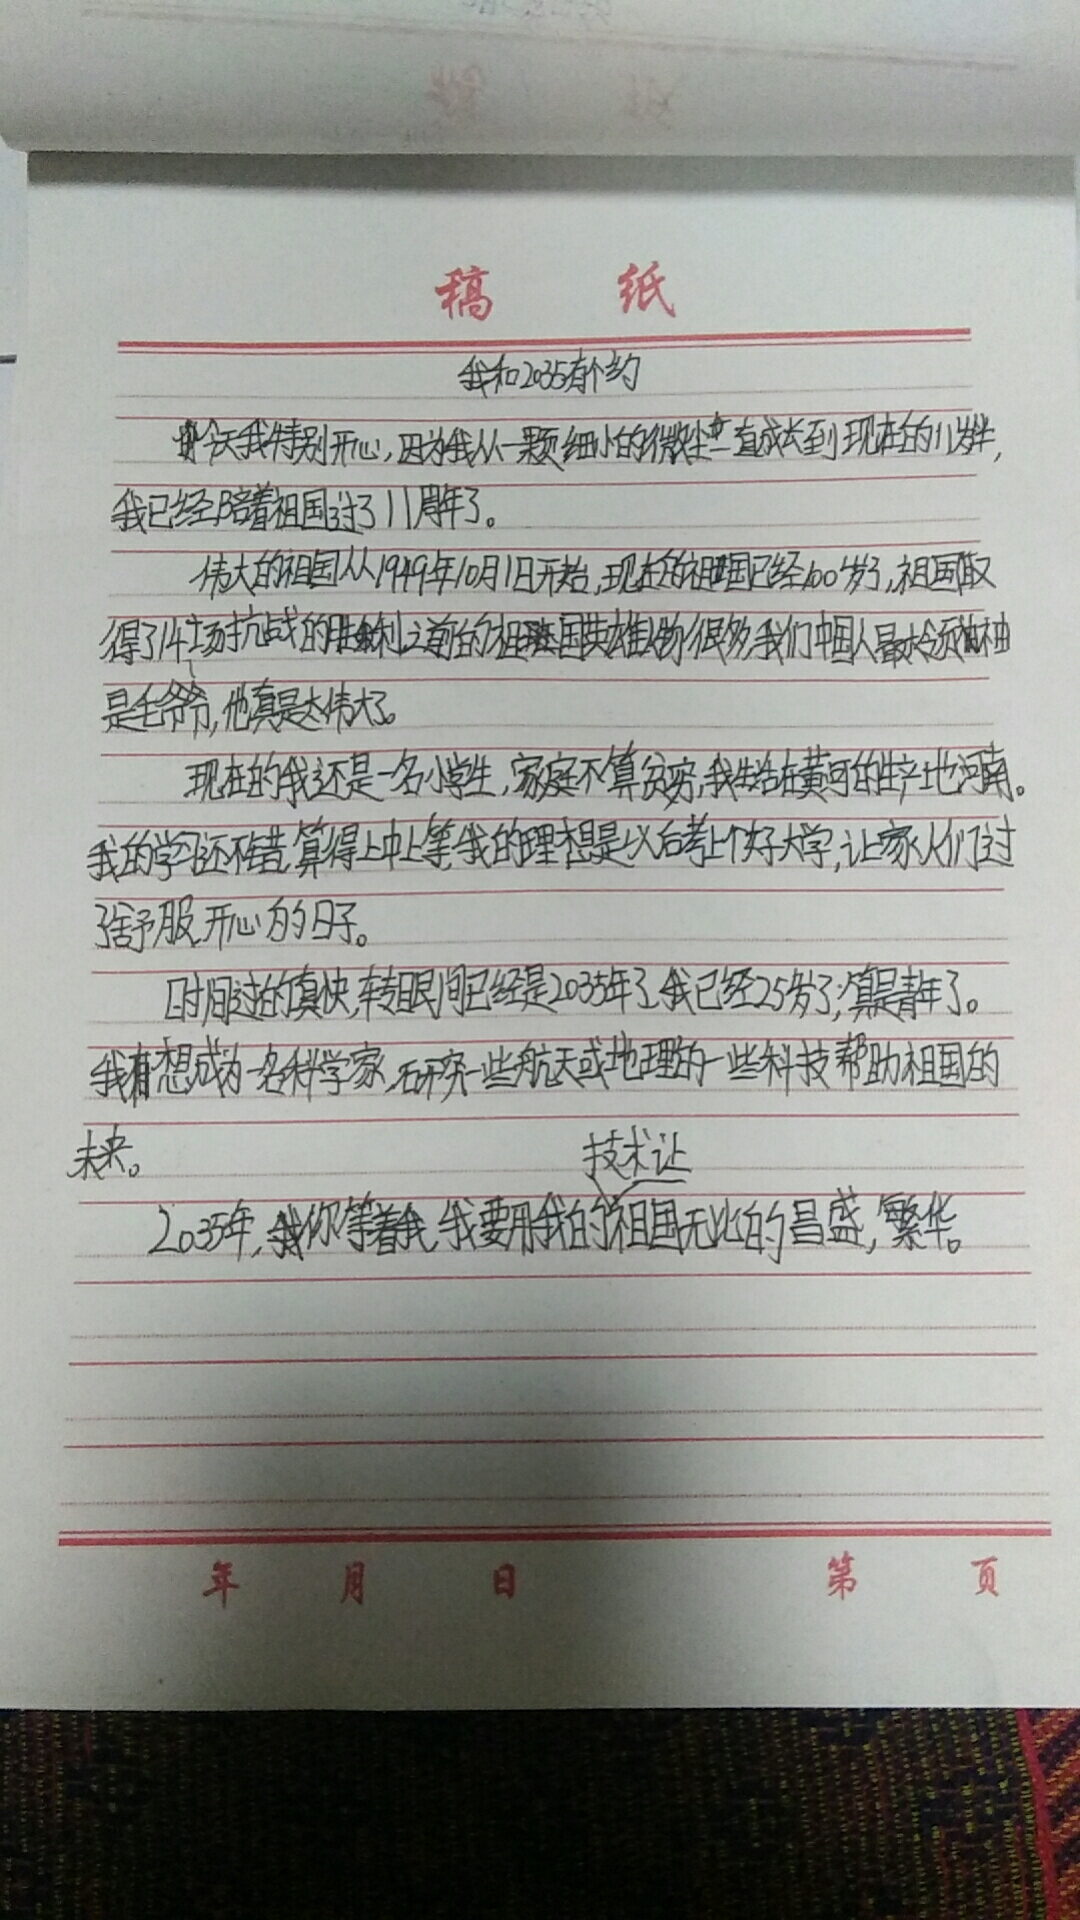 稿 纸
我和2035有个约
今天我特别开心,因为我从一颗细小的微尘一直成长到现在的11岁半,
我已经陪着祖国过了11周年了。
伟大的祖国从1949年10月1日开始,现在的祖国已经100岁了,祖国取
得了14场抗战的胜利之前的祖国英雄人物很多,我们中国人最大领袖
是毛爷爷,他真是太伟大了。
现在的我还是一名小学生,家庭不算贫穷,我生活在黄河的生产地河南。
我的学习还不错,算得上中上等,我的理想是以后考上个好大学,让家人们过
了舒服、开心的日子。
时间过的真快,转眼间已经是2035年了,我已经25岁了,算是青年了。
我想成为一名科学家,研究一些航天或地理的一些科技帮助祖国的
未来。
技术让
2035年,你等着我,我要用我的祖国无比的昌盛,繁华。
年 月 日 第 页